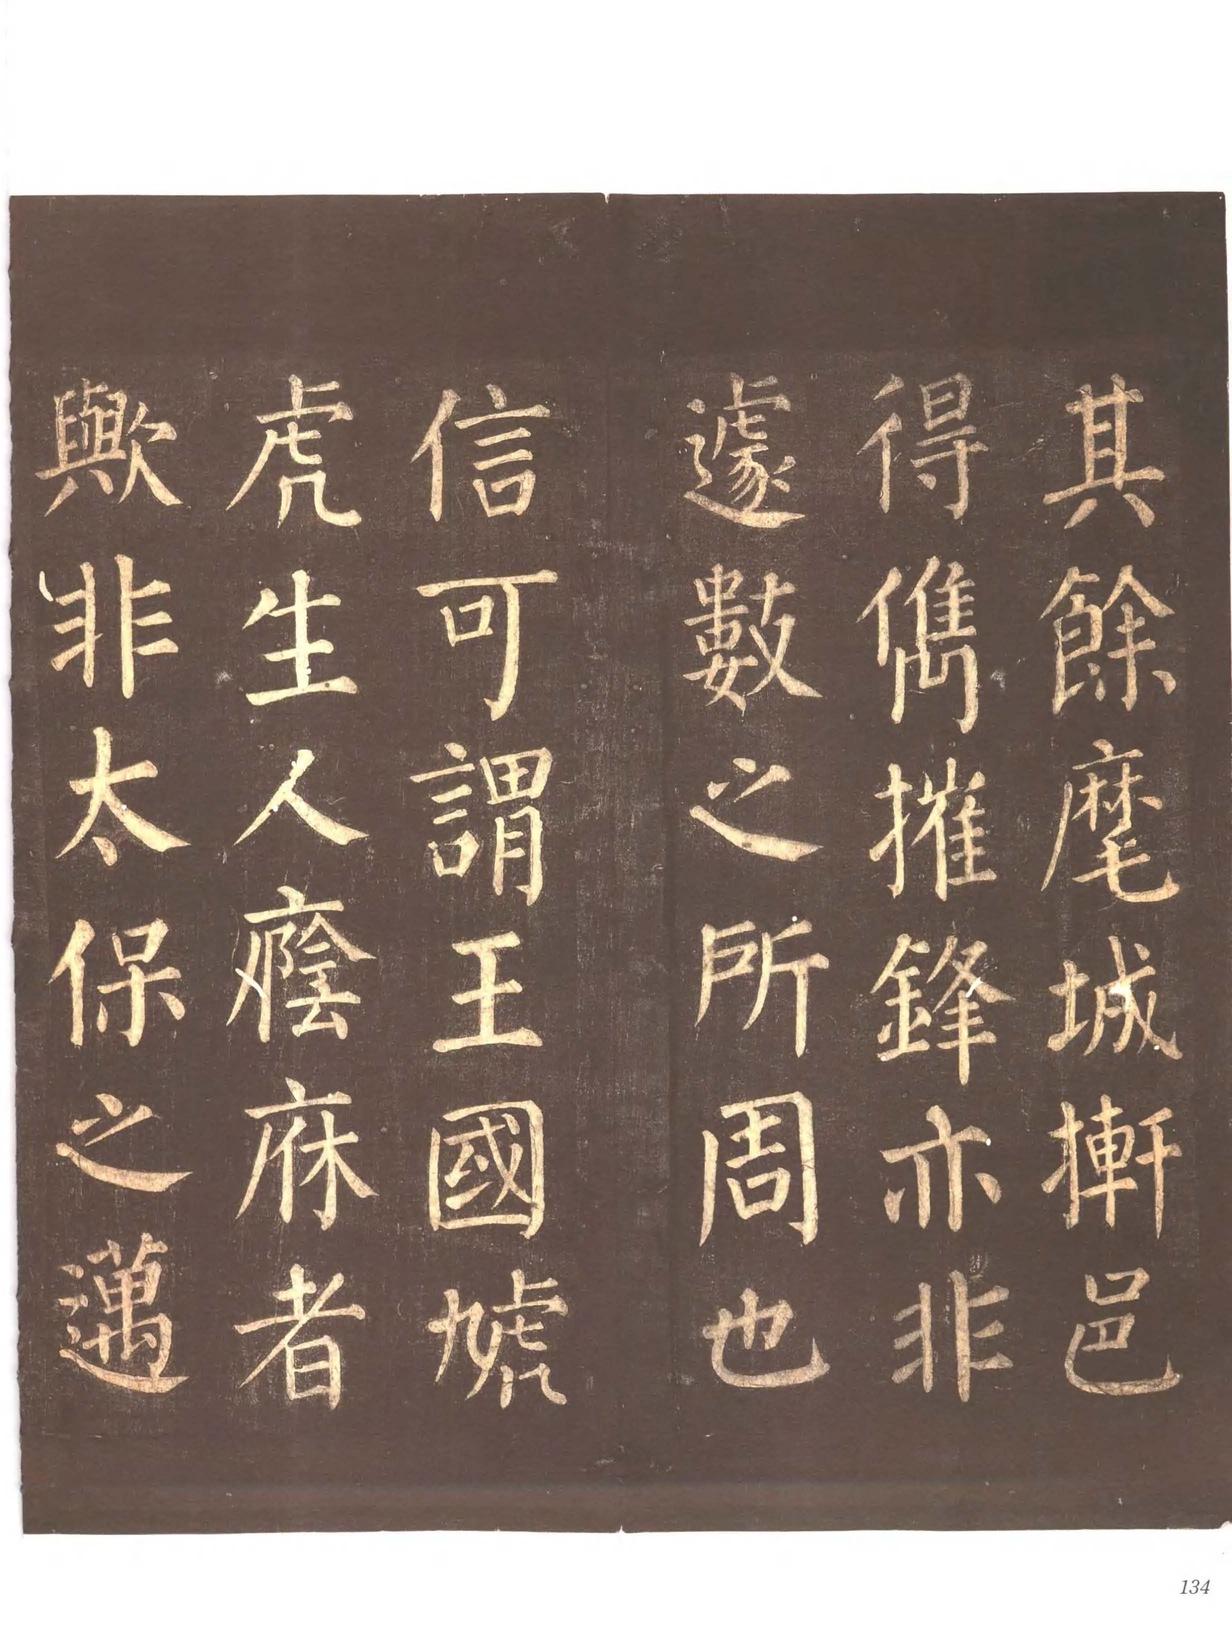 其餘麾城摲邑
得儁摧鋒亦非
遽數之所周也
信可謂王國虓
虎生人廕庥者
歟非太保之邁
134